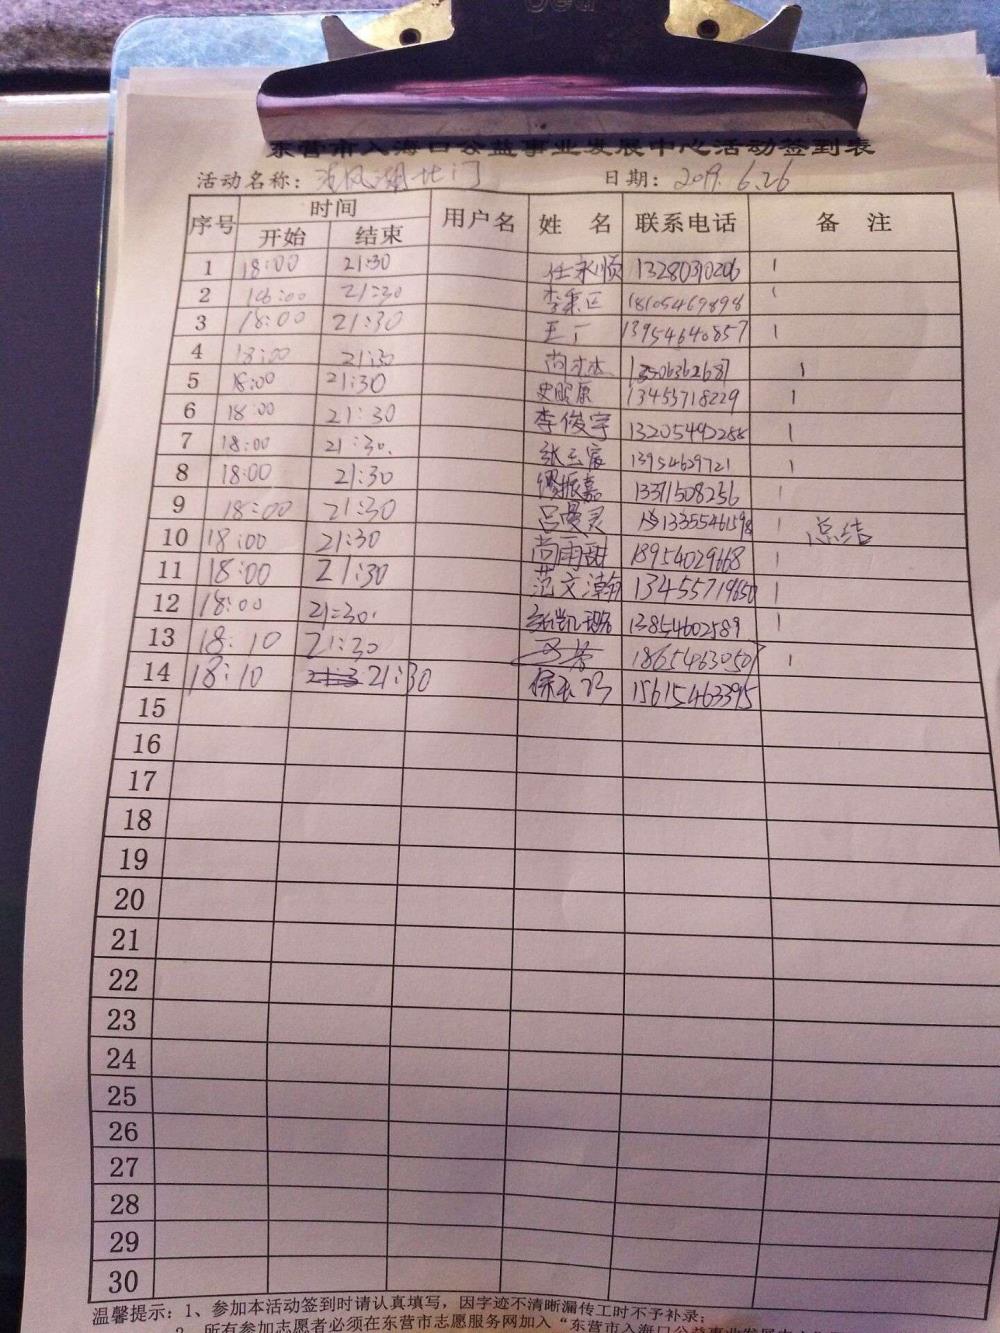 东营市入海口公益事业发展中心活动签到表
活动名称：清风湖北门 日期：2019.6.26
序号 时间 用户名 姓名 联系电话 备注
开始 结束
1 18:00 21:30 任永顺 13280310206 1
2 18:00 21:30 18105469898 1
3 18:00 21:30 王丁 13954640857 1
4 18:00 21:30 13506362687 1
5 18:00 21:30 史熙康 13455718229 1
6 18:00 21:30 李俊宇 13205492288 1
7 18:00 21:30. 张玉宸 13954629721 1
8 18:00 21:30 缪振嘉 13371508256 1
9 18:00 21:30 吕曼灵 13355461598 1 总结
10 18:00 21:30 尚雨甜 18954029668 1
11 18:00 21:30 范文瀚 13455719650 1
12 18:00 21:30. 13854602589 1
13 18:10 21:30 18654630507 1
14 18:10 21:30 15615463395
15
16
17
18
19
20
21
22
23
24
25
26
27
28
29
30
温馨提示：1、参加本活动签到时请认真填写，因字迹不清晰漏传工时不予补录；
2、所有参加志愿者必须在东营市志愿服务网加入“东营市入海口公益事业发展中